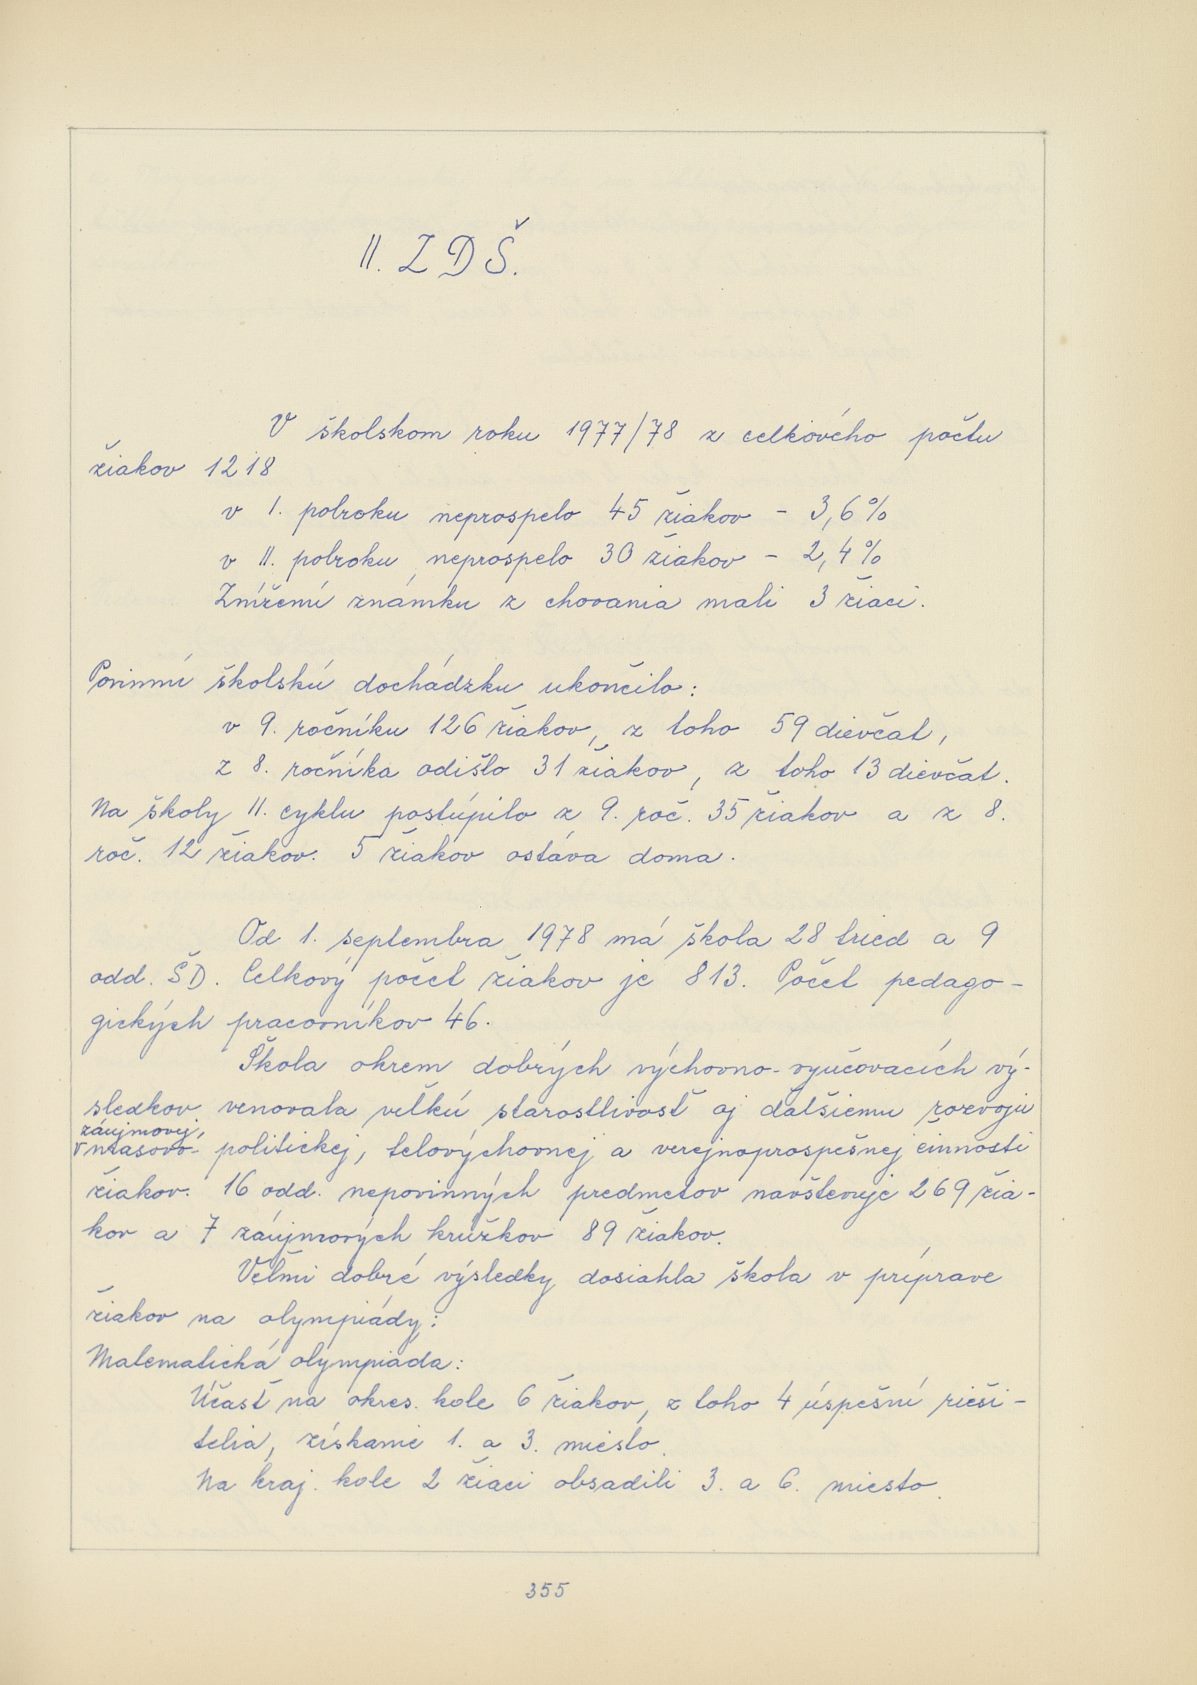 II. ZDŠ.
V školskom roku 1977/78 z celkového počtu
žiakov 1218
v I. polroku neprospelo 45 žiakov - 3,6%
v II. polroku neprospelo 30 žiakov - 2,4%
Zníženú známku z chovania mali 3 žiaci.
Povinnú školskú dochádzku ukončilo:
v 9. ročníku 126 žiakov, z toho 59 dievčat,
z 8. ročníka odišlo 31 žiakov, z toho 13 dievčat.
Na školy II. cyklu postúpilo z 9. roč. 35 žiakov a z 8.
roč. 12 žiakov. 5 žiakov ostáva doma.
Od 1. septembra 1978 má škola 28 tried a 9
odd. ŠD. Celkový počet žiakov je 813. Počet pedago-
gických pracovníkov 46.
Škola okrem dobrých výchovno-vyučovacích vý-
sledkov venovala veľkú starostlivosť aj ďalšiemu rozvoju
záujmovej,
v masovo-politickej, telovýchovnej a verejnoprospešnej činnosti
žiakov. 16 odd. nepovinných predmetov navštevuje 269 žia-
kov a 7 záujmových krúžkov 89 žiakov.
Veľmi dobré výsledky dosiahla škola v príprave
žiakov na olympiády:
Matematická olympiáda:
Účasť na okres. kole 6 žiakov, z toho 4 úspešní rieši-
telia, získanie 1. a 3. miesto.
Na kraj. kole 2 žiaci obsadili 3. a 6. miesto.
355